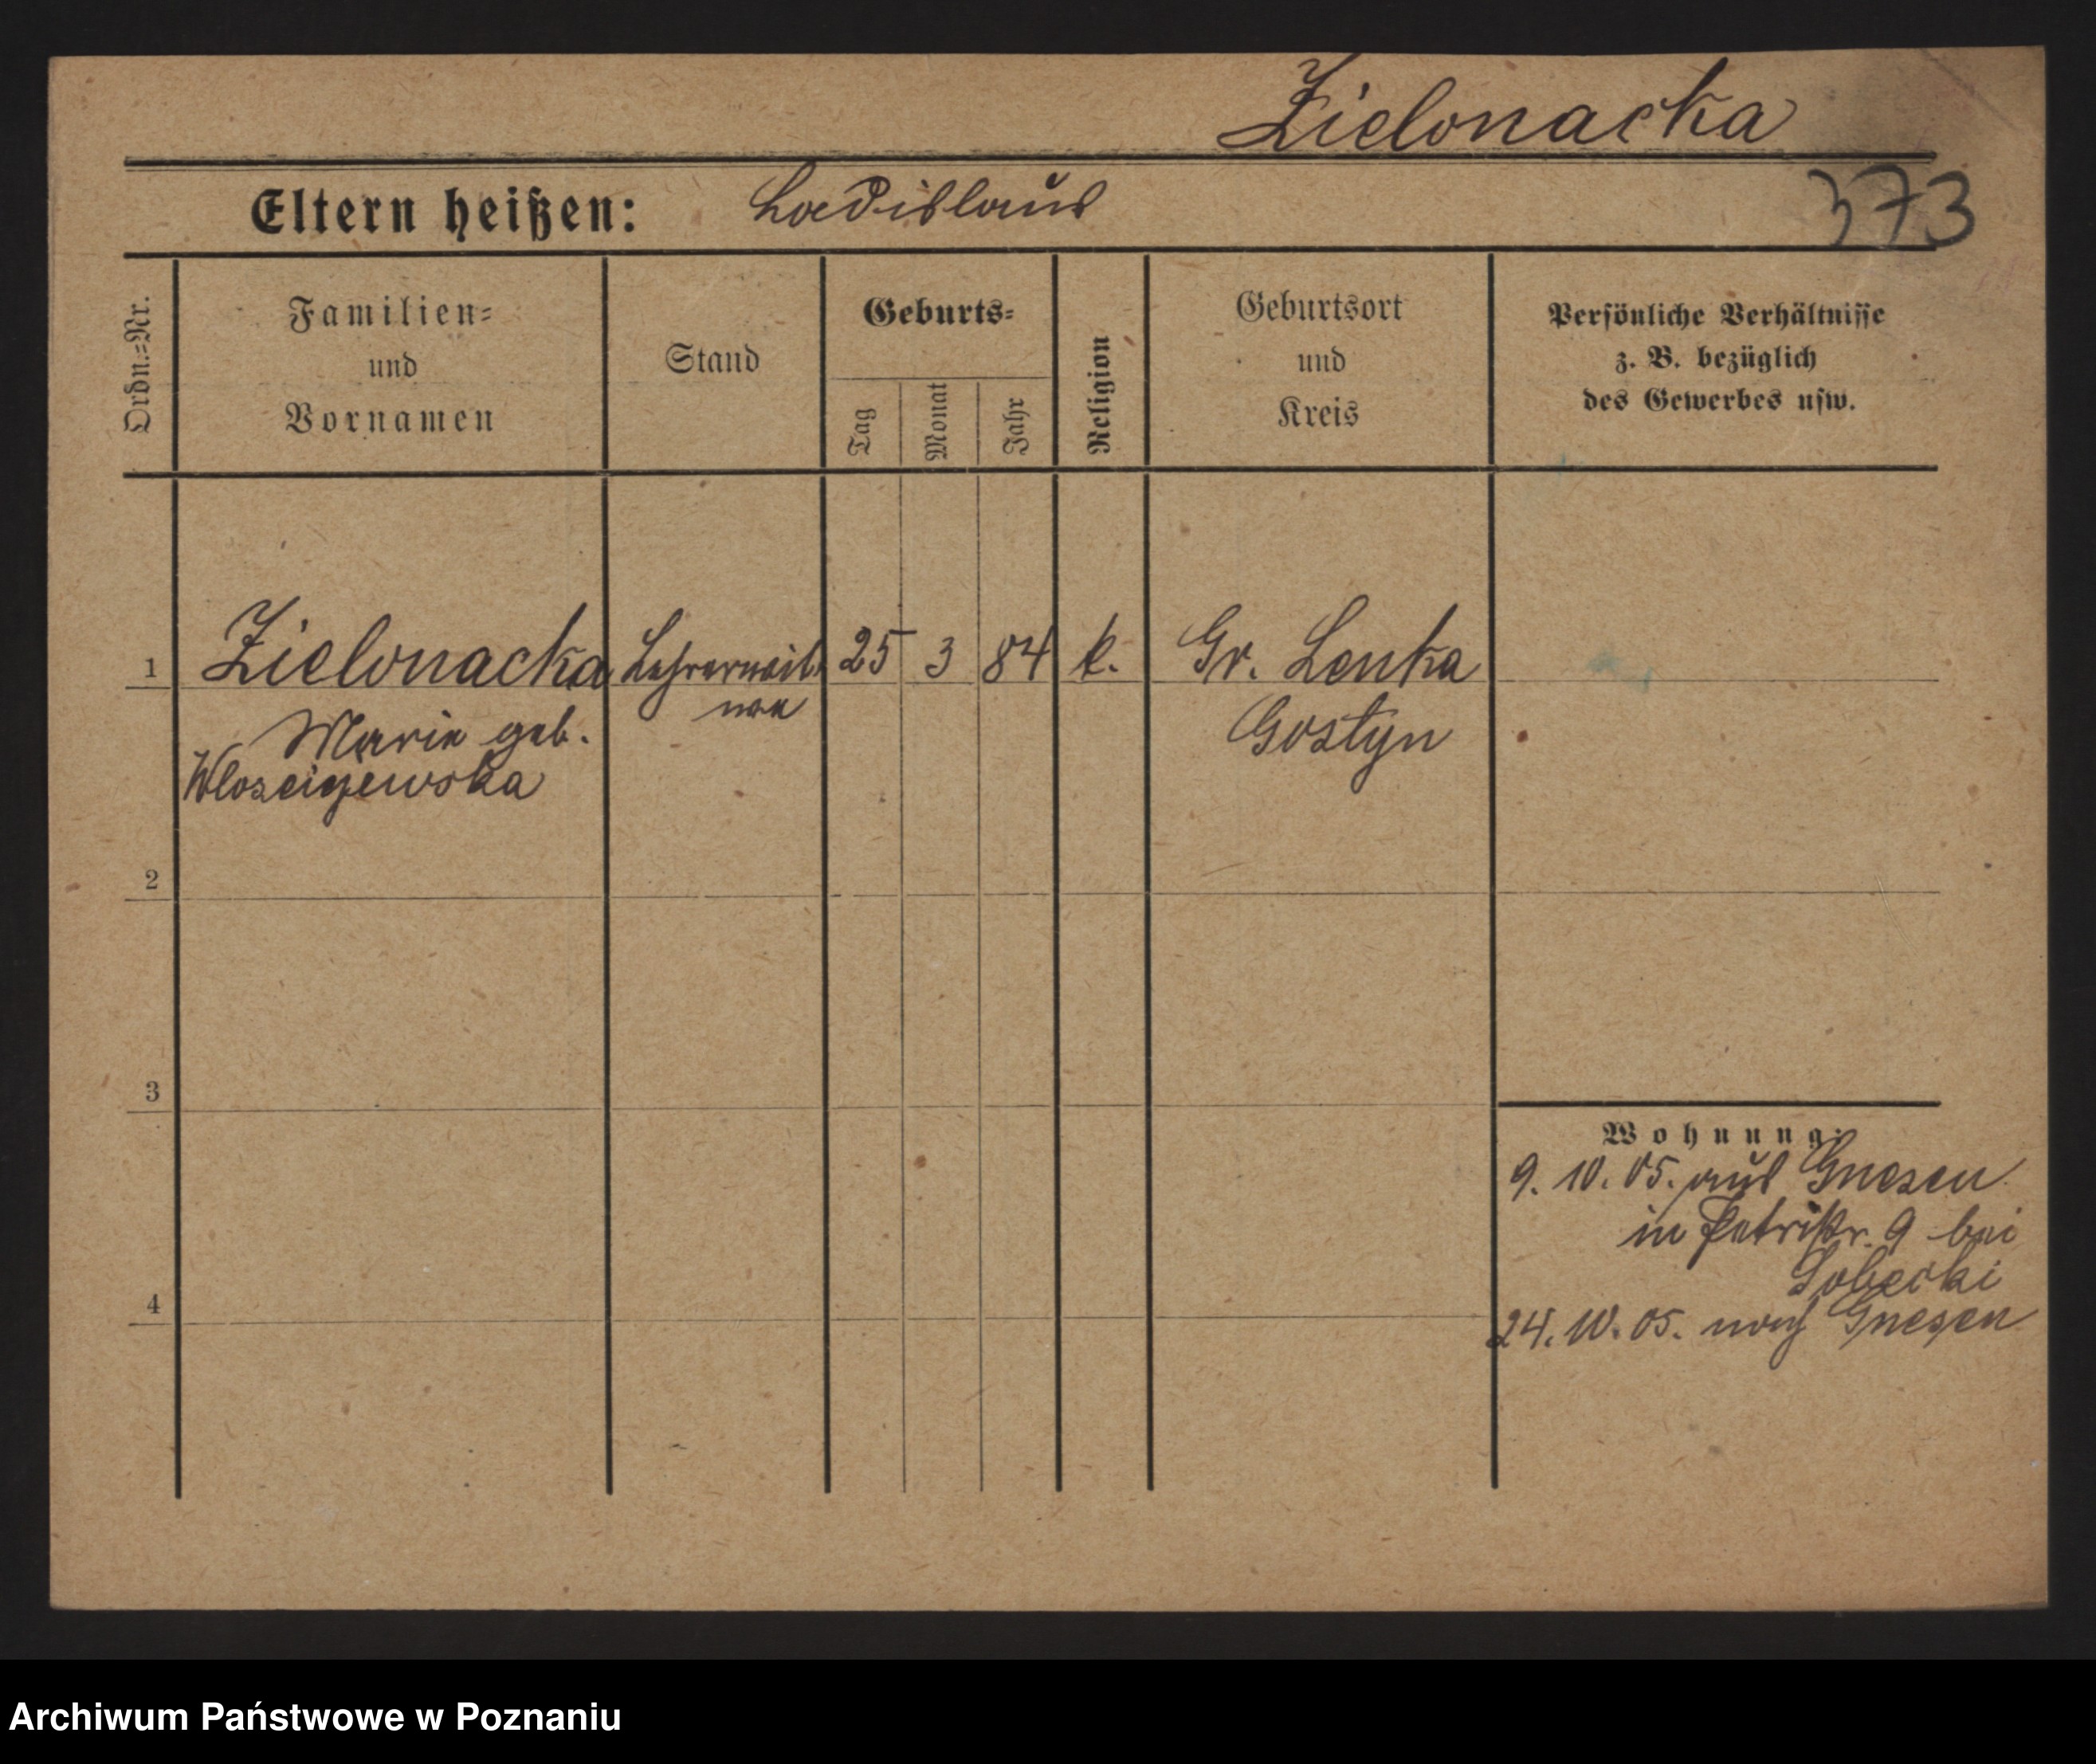 Zielonacka
Eltern heißen: Ladislaus
373
Ordn.=Nr.
Familien=
und
Vornamen
Stand
Geburts=
Tag
Monat
Jahr
Religion
Geburtsort
und
Kreis
Persönliche Verhältnisse
z. B. bezüglich
des Gewerbes usw.
1 Zielonacka Lehrerwit- 25 3 84 k. Gr. Lenka
we
Marie geb. Gostyn
2
3
Wohnung:
9. 10. 05. aus Gnesen
in Petristr. 9 bei
Sobecki
4
24. 10. 05. nach Gnesen
Archiwum Państwowe w Poznaniu